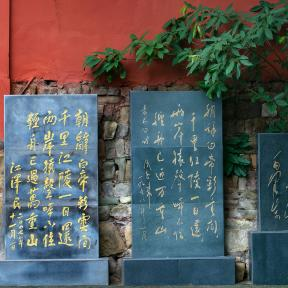 朝辭白帝彩雲間
千里江陵一日還
两岸猿聲啼不住
輕舟已過萬重山
江澤民
朝辞白帝彩云间
千里江陵一日還
两岸猿声啼不住
轻舟已过万重山